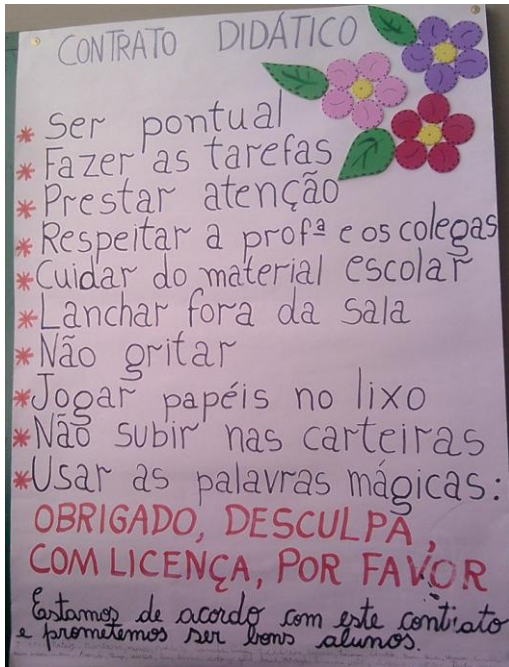 CONTRATO DIDÁTICO
* Ser pontual
* Fazer as tarefas
* Prestar atenção
* Respeitar a profª e os colegas
* Cuidar do material escolar
* Lanchar fora da sala
* Não gritar
* Jogar papéis no lixo
* Não subir nas carteiras
* Usar as palavras mágicas:
OBRIGADO, DESCULPA,
COM LICENÇA, POR FAVOR
Estamos de acordo com este contrato
e prometemos ser bons alunos.